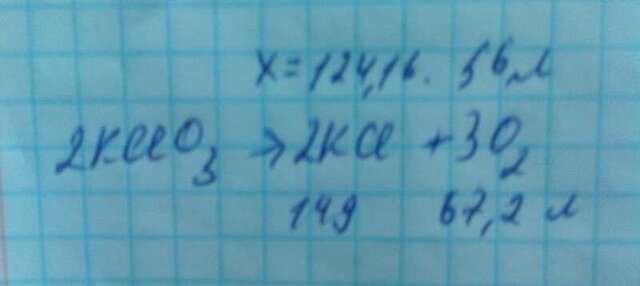 x=124,16. 56л
2KClO₃ → 2KCl + 3O₂
149 67,2 л